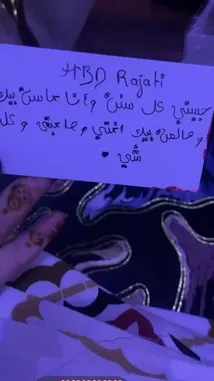 HBD Rajati
حبيبتي كل سنة وأنا حاسة بيك
وحالمة بيك اختي وصاحبتي وكل
شي